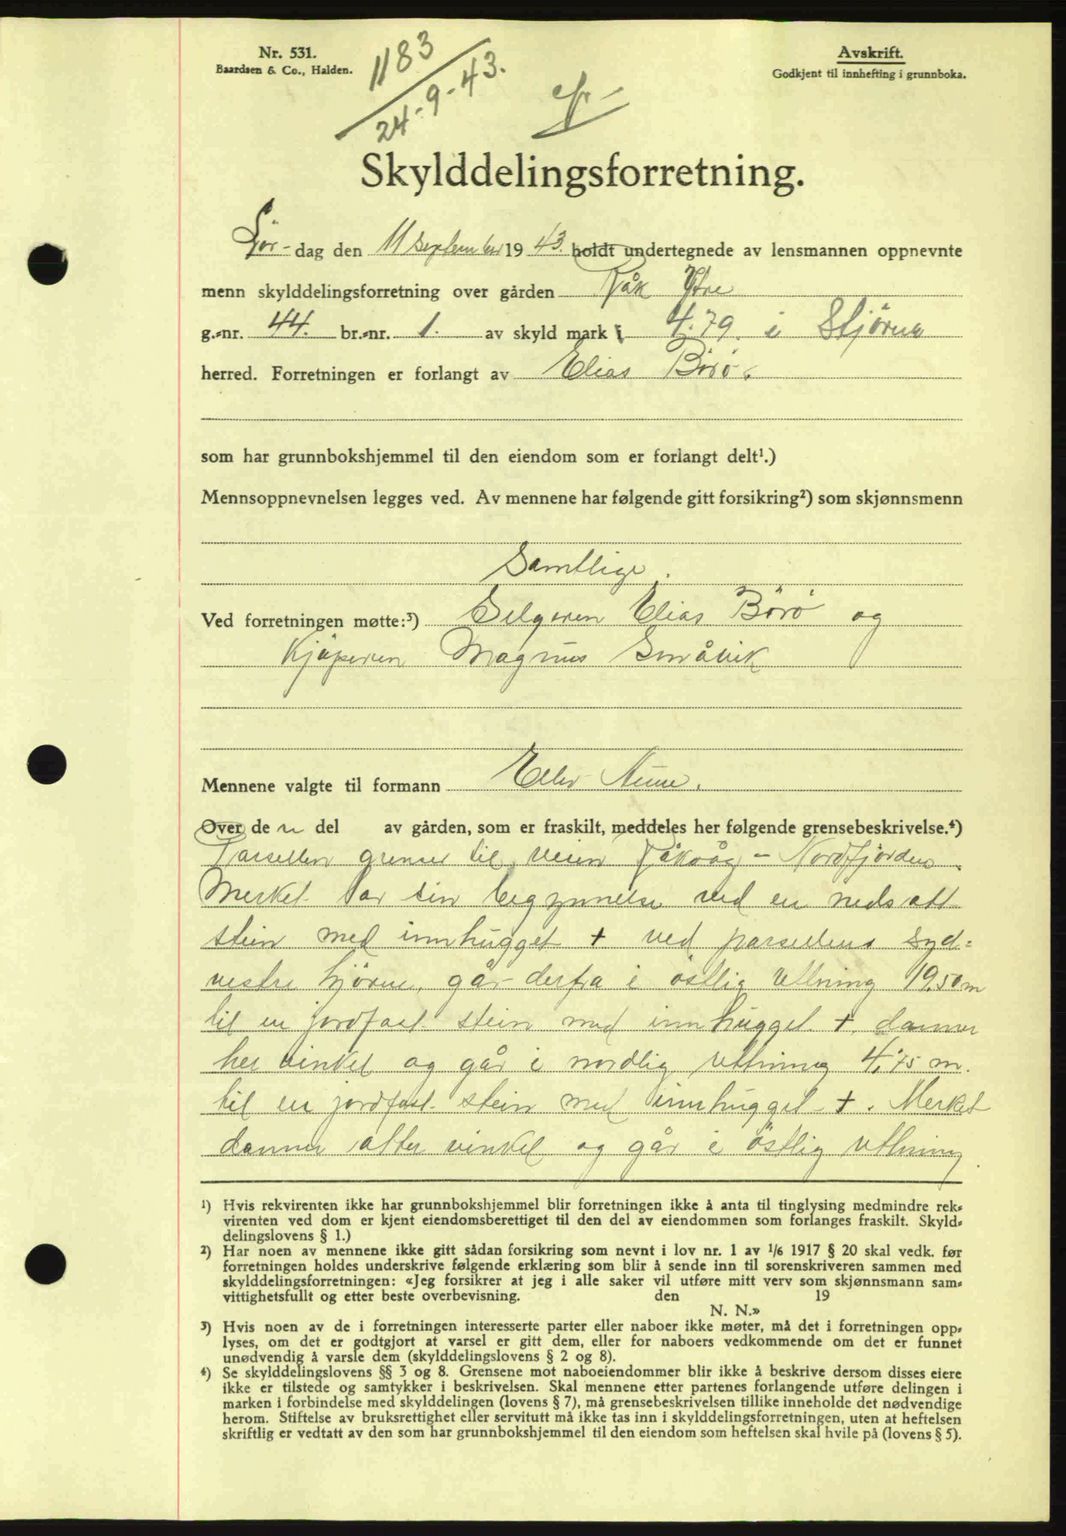 Nr. 531.
Baardsen & Co., Halden.
1183
24-9-43.
Avskrift.
Godkjent til innhefting i grunnboka.
Skylddelingsforretning.
Lör- dag den 11 September 19 43. holdt undertegnede av lensmannen oppnevnte
menn skylddelingsforretning over gården Råk Ytre
g.-nr. 44. br.-nr. 1. av skyld mark 4.79. i Stjörna
herred. Forretningen er forlangt av Elias Börö.
som har grunnbokshjemmel til den eiendom som er forlangt delt¹.)
Mennsoppnevnelsen legges ved. Av mennene har følgende gitt forsikring²) som skjønnsmenn
Samtlige.
Ved forretningen møtte:³) Selgeren Elias Börö og
Kjöperen Magnus Småvik
Mennene valgte til formann
Over de n del av gården, som er fraskilt, meddeles her følgende grensebeskrivelse.⁴)
Parsellen grenser til veien Råkvåg - Nordfjorden.
Merket tar sin begynnelse ved en nedsatt
stein med innhugget + ved parsellens syd-
vestre hjörne, går derfra i östlig rettning 19,50 m
til en jordfast stein med innhugget +, danner
her vinkel og går i nordlig rettning 4,75 m.
til en jordfast stein med innhugget +. Merket
danner atter vinkel og går i östlig rettning
¹) Hvis rekvirenten ikke har grunnbokshjemmel blir forretningen ikke å anta til tinglysing medmindre rek-
virenten ved dom er kjent eiendomsberettiget til den del av eiendommen som forlanges fraskilt. Skyld-
delingslovens § 1.)
²) Har noen av mennene ikke gitt sådan forsikring som nevnt i lov nr. 1 av 1/6 1917 § 20 skal vedk. før
forretningen holdes underskrive følgende erklæring som blir å sende inn til sorenskriveren sammen med
skylddelingsforretningen: «Jeg forsikrer at jeg i alle saker vil utføre mitt verv som skjønnsmann sam-
vittighetsfullt og etter beste overbevisning. den 19
N. N.»
³) Hvis noen av de i forretningen interesserte parter eller naboer ikke møter, må det i forretningen opp-
lyses, om det er godtgjort at varsel er gitt dem, eller for naboers vedkommende om det er funnet
unødvendig å varsle dem (skylddelingslovens § 2 og 8).
⁴) Se skylddelingslovens §§ 3 og 8. Grensene mot naboeiendommer blir ikke å beskrive dersom disses eiere
ikke er tilstede og samtykker i beskrivelsen. Skal mennene etter partenes forlangende utføre delingen i
marken i forbindelse med skylddelingen (lovens § 7), må grensebeskrivelsen tillike inneholde det nødvendige
herom. Stiftelse av bruksrettighet eller servitutt må ikke tas inn i skylddelingsforretningen, uten at heftelsen
skriftlig er vedtatt av den som har grunnbokshjemmel til den eiendom som heftelsen skal hvile på (lovens § 5).